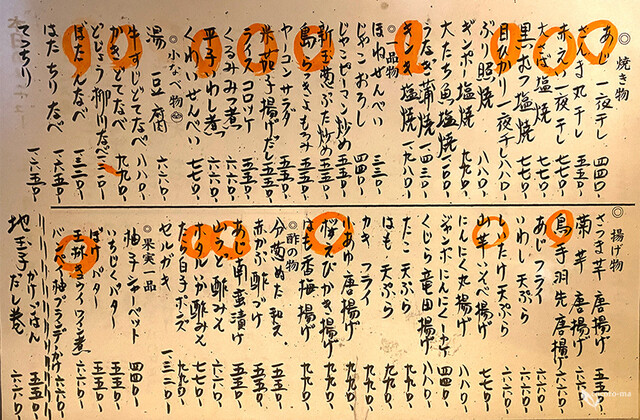 ◎焼き物
あじ一夜干し 四四〇-
さんま丸干し 五五〇-
赤えい一夜干し 七七〇-
大さば塩焼 七七〇-
黒むつ塩焼
目ひかり一夜干し 八八〇-
ぶり照焼 八八〇-
ギンポー塩焼
大たち魚塩焼
うなぎ蒲焼 一四三〇-
塩焼 一九八〇-
◎品物
ほねせんべい 三三〇-
じゃこおろし 四四〇-
じゃこピーマン炒め 五五〇-
新玉葱ぶた炒め 五五〇-
島らっきょもろみ 五五〇-
ヤーコンサラダ 五五〇-
米茄子揚げだし 五五〇-
ライスコロッケ 五五〇-
くるみみつ煮 六六〇-
平子いわし煮 六六〇-
くわいせんべい 七七〇-
◎小なべ物
湯豆腐 六六〇-
牛すじどてなべ 八八〇-
かきどてなべ 九九〇-
どじょう柳川なべ
ぼたんなべ
はたちりなべ 一六五〇-
てっちり 一六五〇-
◎揚げ物
さつま芋唐揚げ 五五〇-
菊芋唐揚げ
鳥手羽先唐揚げ 六六〇-
あじフライ 六六〇-
いわし天ぷら 六六〇-
たけ天ぷら 六六〇-
山芋いそべ揚げ 七七〇-
にんにく丸揚げ 四四〇-
ジャンボにんにく
くじら竜田揚げ 八八〇-
たこ天ぷら 八八〇-
はも天ぷら 九九〇-
かきフライ 九九〇-
あゆ唐揚げ 九九〇-
桜えびかき揚げ 九九〇-
はも香梅揚げ 九九〇-
◎酢の物
分葱ぬた和え 五五〇-
赤かぶ酢づけ 五五〇-
あじ南蛮漬け 五五〇-
山うど酢みそ 六六〇-
ホタルイカ酢みそ 九九〇-
たら白子ポン酢 一三二〇-
ゼルガキ
◎果実一品
柚子シャーベット 四四〇-
いちじくバター 五五〇-
ぼけバター 五五〇-
玉林きょウイワイン煮 六六〇-
柚ブランデーがけ 六六〇-
地玉子かけごはん 五五〇-
だし巻 六六〇-